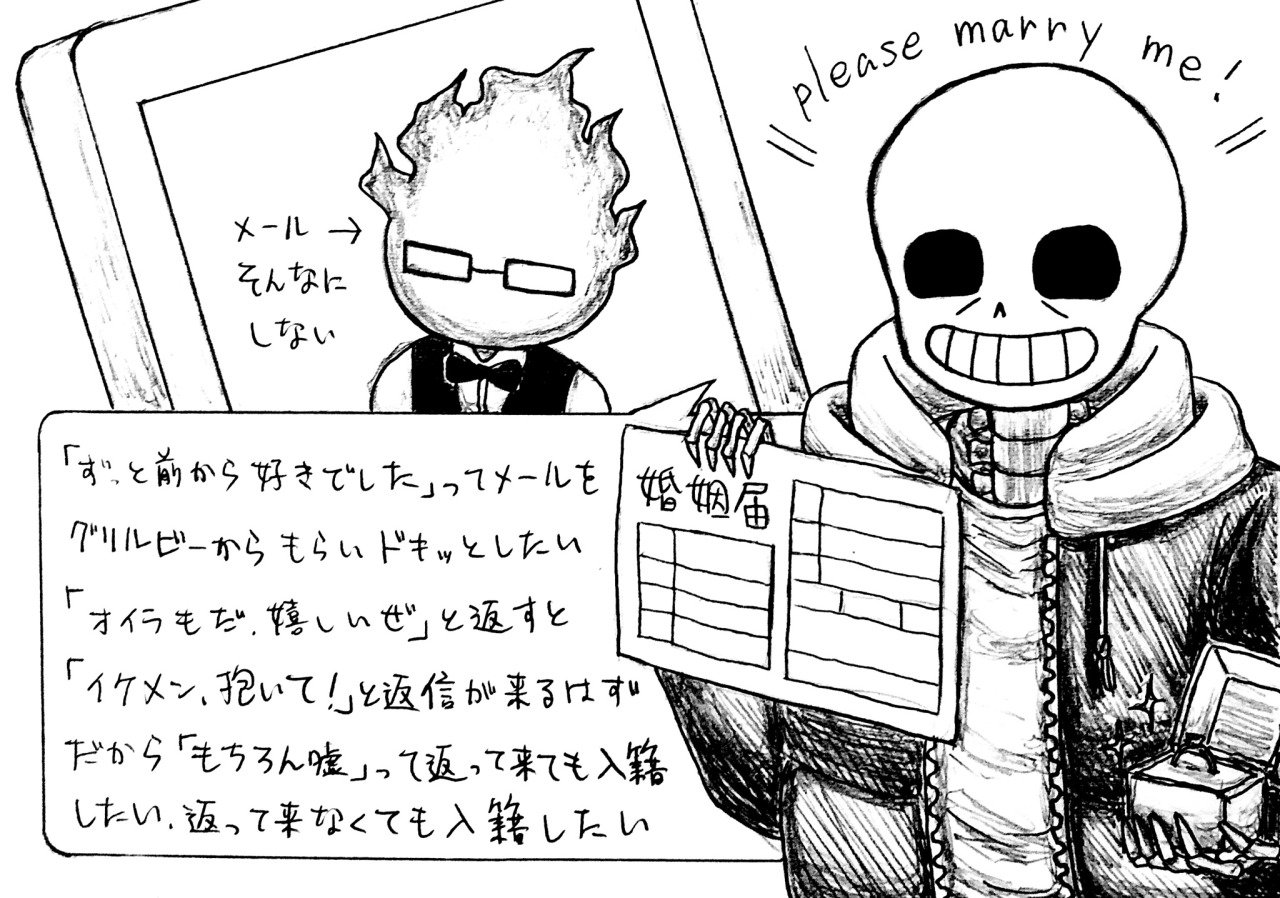 please marry me!
メール→
そんなに
しない
「ずっと前から好きでした」ってメールを
グリルビーからもらいドキッとしたい
「オイラもだ、嬉しいぜ」と返すと
「イケメン、抱いて!」と返信が来るはず
だから「もちろん嘘」って返って来ても入籍
したい、返って来なくても入籍したい
婚姻届